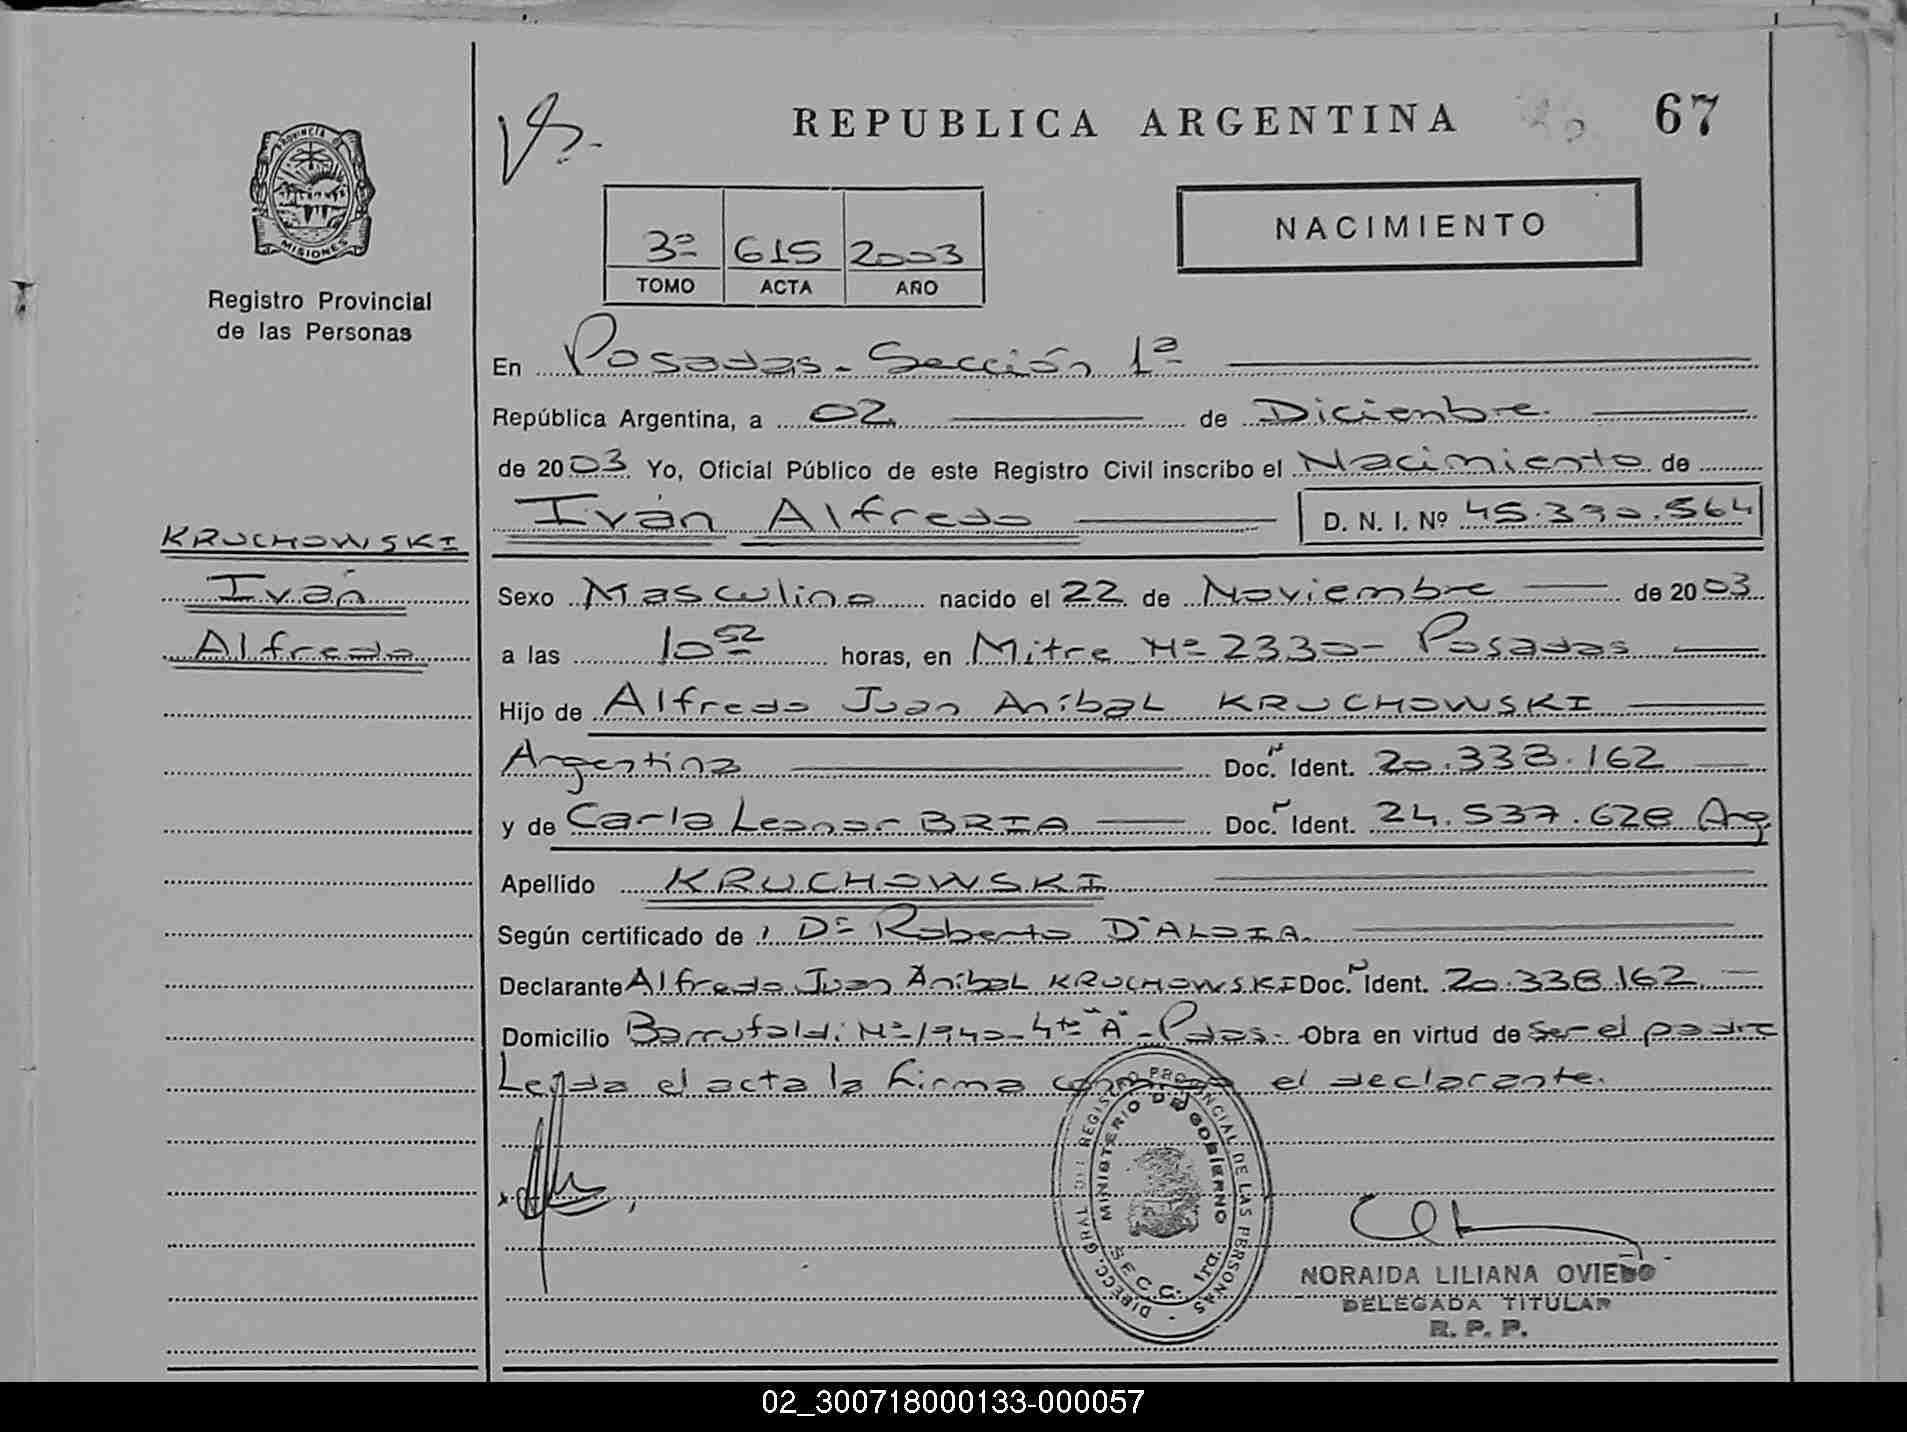 REPUBLICA ARGENTINA
67
PROVINCIA DE
MISIONES
Registro Provincial
de las Personas
NACIMIENTO
3º 615 2003
TOMO ACTA AÑO
En Posadas - Sección 1ª
República Argentina, a 02 de Diciembre
de 2003 Yo, Oficial Público de este Registro Civil inscribo el Nacimiento de
Iván Alfredo D. N. I. Nº 45.390.564
KRUCHOWSKI
Iván
Alfredo
Sexo Masculino nacido el 22 de Noviembre de 2003
a las 10 52 horas, en Mitre Nº 2330 - Posadas
Hijo de Alfredo Juan Aníbal KRUCHOWSKI
Argentina Doc. Ident. 20.338.162
y de Carla Leonor BRIA Doc. Ident. 24.537.628 Arg
Apellido KRUCHOWSKI
Según certificado de Dr Roberto D'ALOIA
Declarante Alfredo Juan Aníbal KRUCHOWSKI Doc. Ident. 20.338.162
Domicilio Barrufaldi Nº 1940 - 4to "A" - Pdas - Obra en virtud de ser el padre
Leída el acta la firma conmigo el declarante.
DIRECC. GRAL. DEL REGISTRO PROVINCIAL DE LAS PERSONAS
MINISTERIO DE GOBIERNO
SECC. 1ra.
NORAIDA LILIANA OVIEDO
DELEGADA TITULAR
R. P. P.
02_300718000133-000057